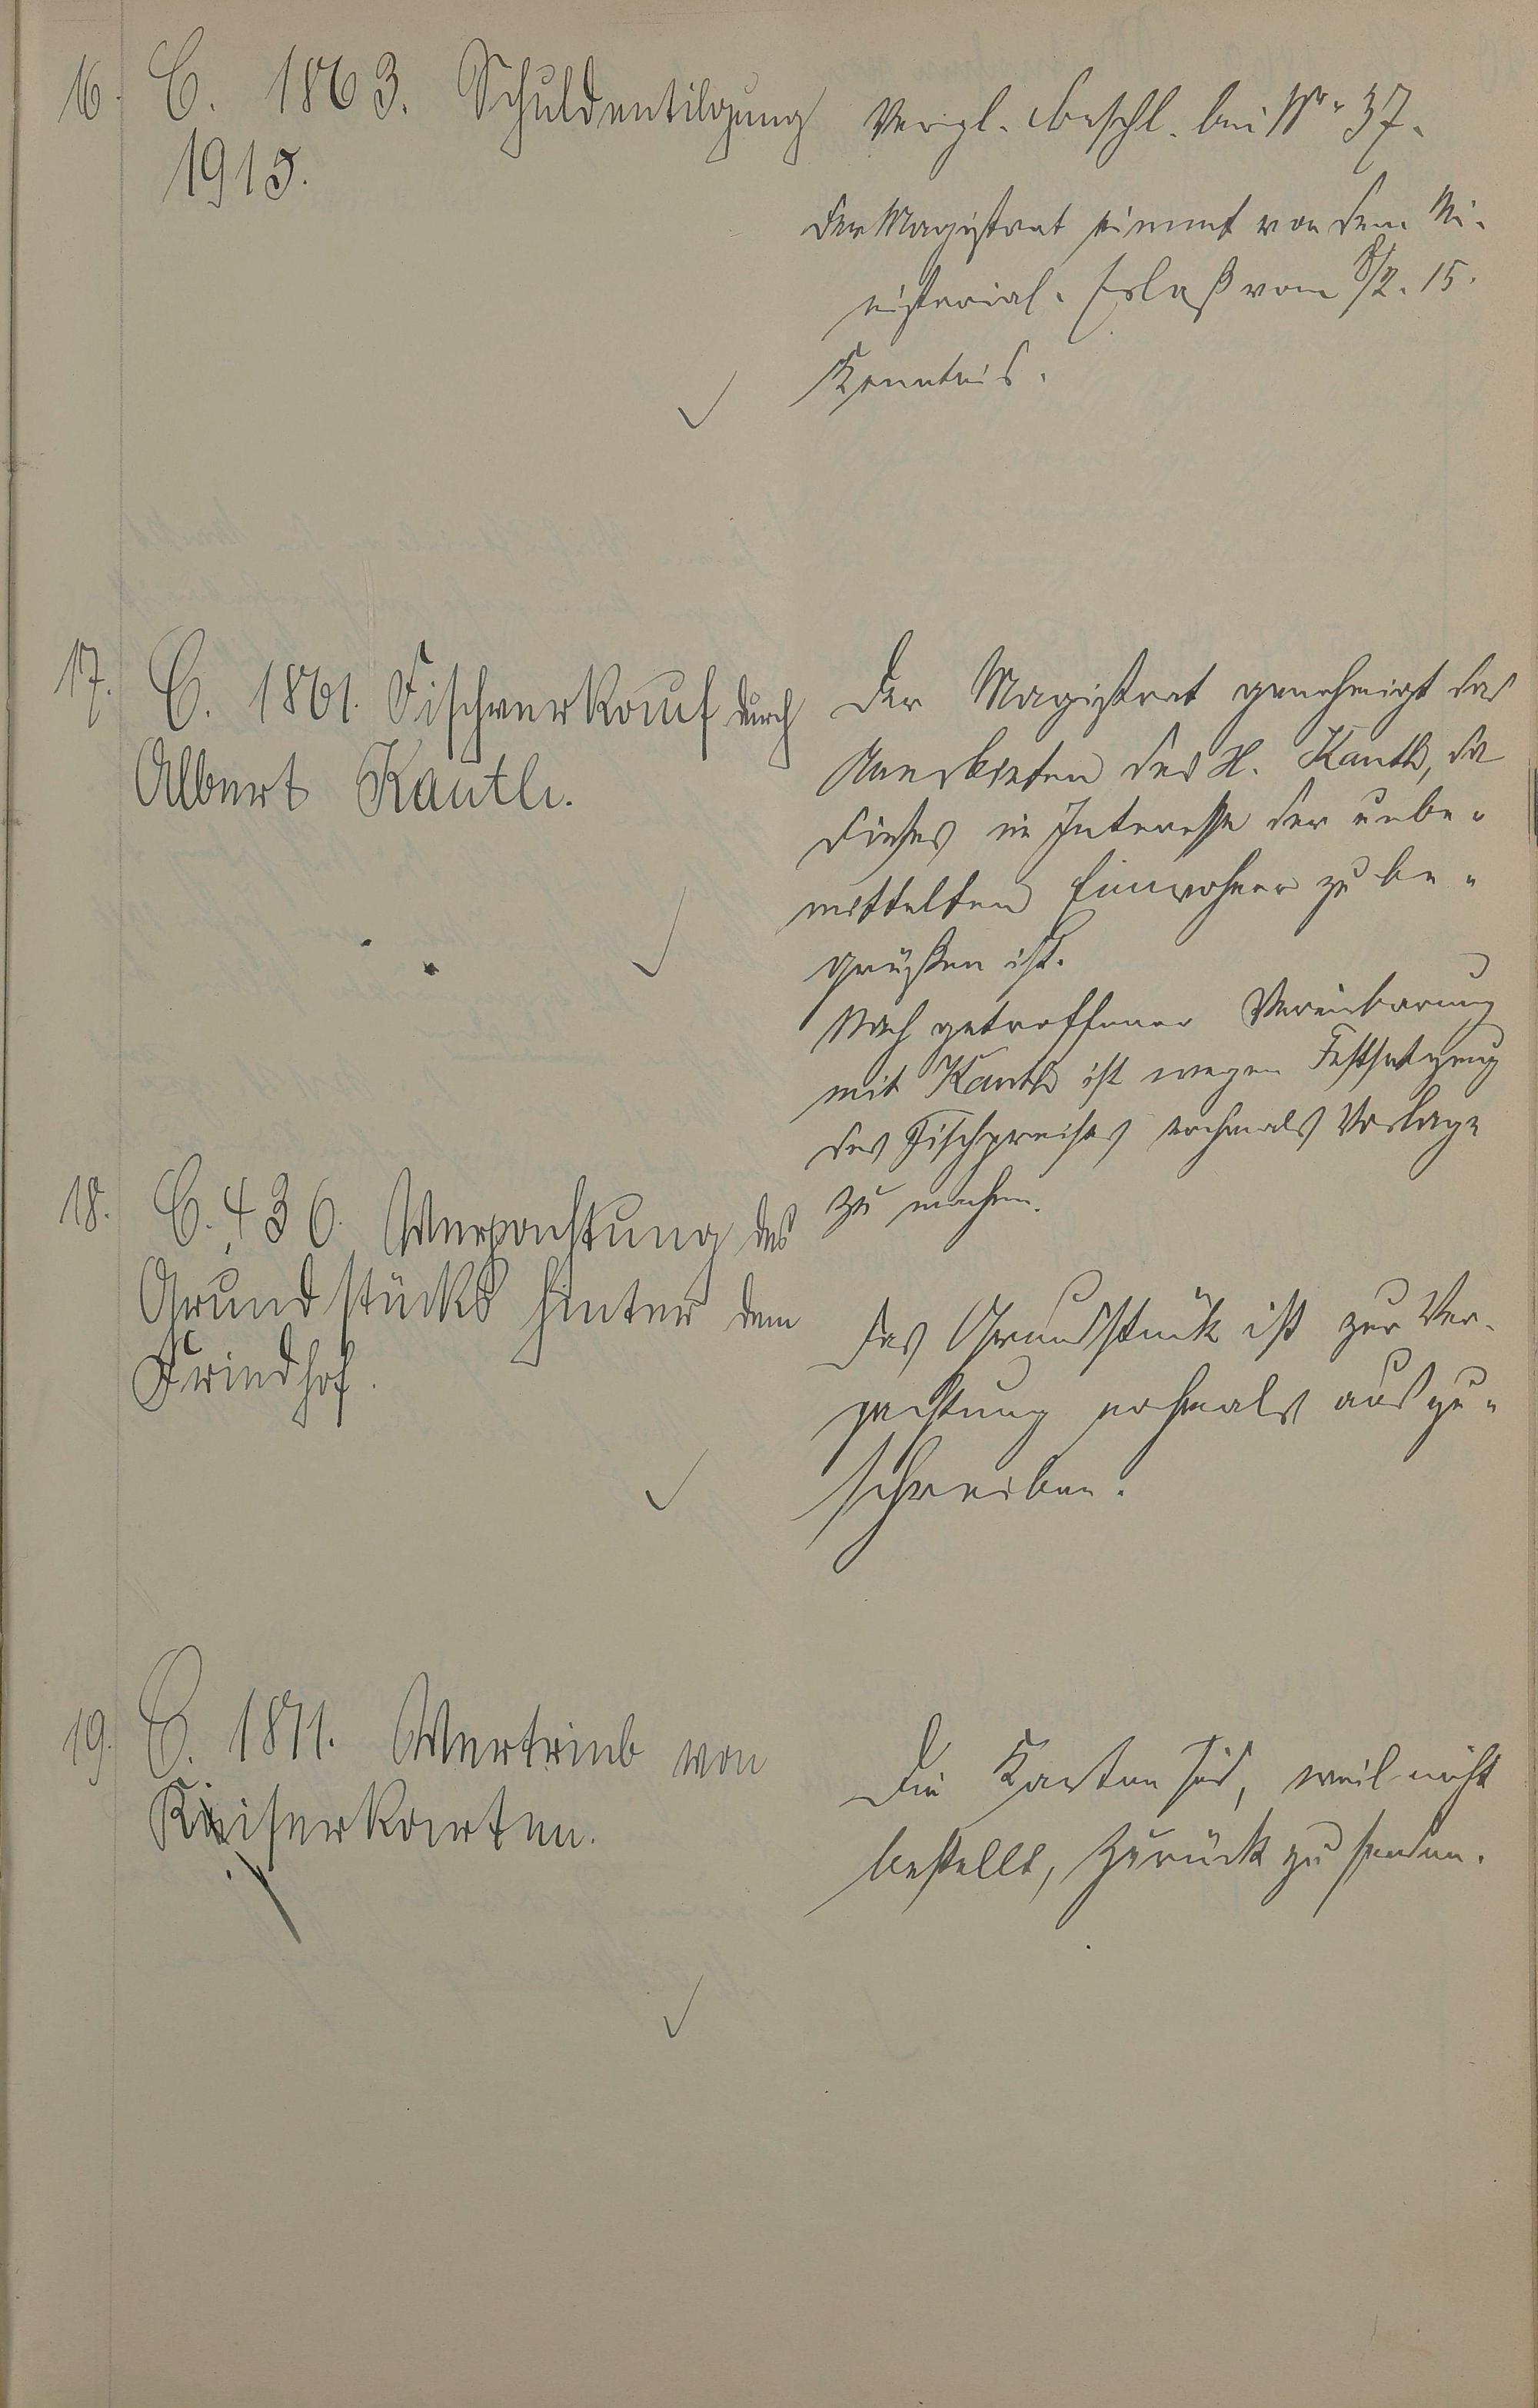 16. C. 1863. Schuldentilgung
1915.
Vergl. Beschl. bei Nr. 37.
Der Magistrat nimmt von dem Mi-
nisterial-Erlaß vom 8/2. 15.
Kenntnis.
17. C. 1861. Fischverkauf durch
Albert Kauth.
Der Magistrat genehmigt das
Anerbieten des H. Kauth, da
dieses im Interesse der unbe-
mittelten Einwohner zu be-
grüßen ist.
Nach getroffener Vereinbarung
mit Kauth ist wegen Festsetzung
des Fischpreises nochmals Vorlage
zu machen.
18. C. 436. Verpachtung des
Grundstücks hinter dem
Friedhof.
Das Grundstück ist zur Ver-
pachtung nochmals auszu-
schreiben.
19. C. 1871. Vertrieb von
Kaiserkarten.
Die Karten sind, weil nicht
bestellt, zurück zu senden.